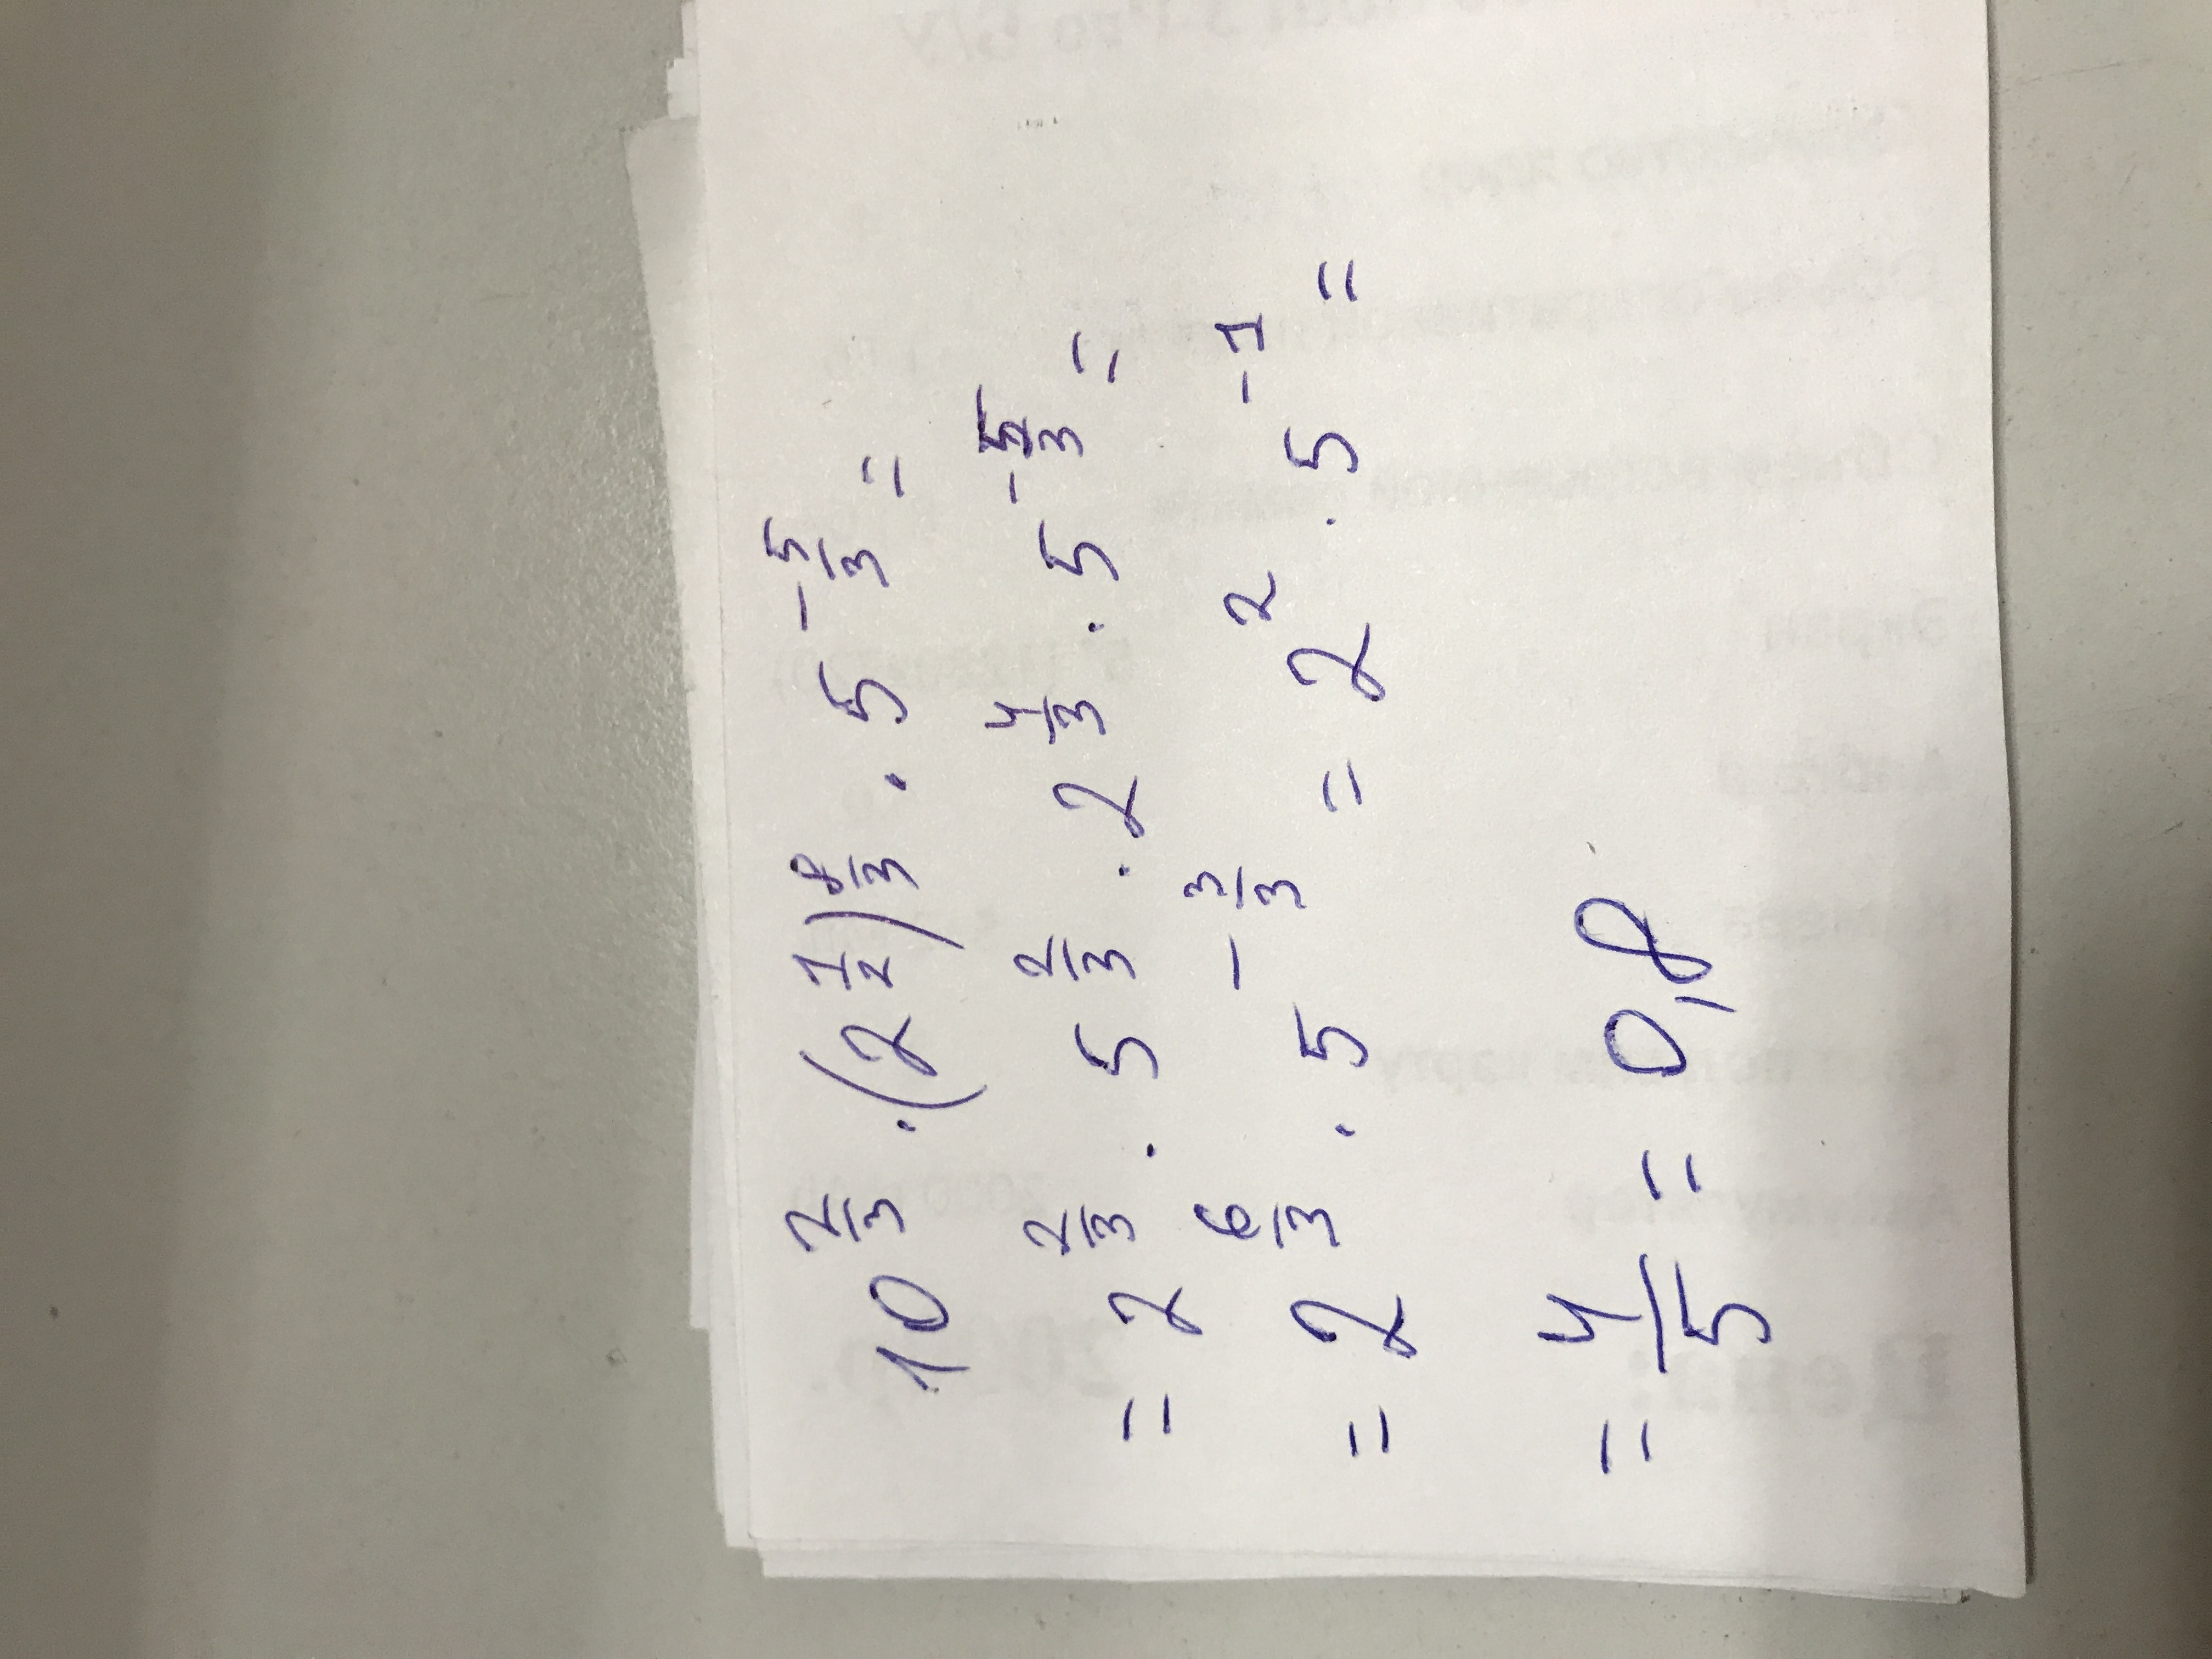 10^(2/3) · (2^(1/2))^(8/3) · 5^(-5/3) =
= 2^(2/3) · 5^(2/3) · 2^(4/3) · 5^(-5/3) =
= 2^(6/3) · 5^(-3/3) = 2^2 · 5^(-1) =
= 4/5 = 0,8